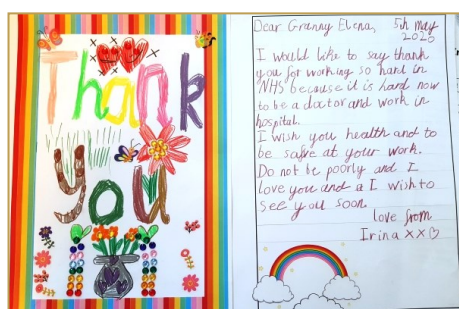 Thank
you
Dear Granny Elena, 5th may
2020
I would like to say thank
you for working so hard in
NHS because it is hard now
to be a doctor and work in
hospital.
I wish you health and to
be safve at your work.
Do not be poorly and I
love you and a I wish to
see you soon.
love from
Irina xx♡